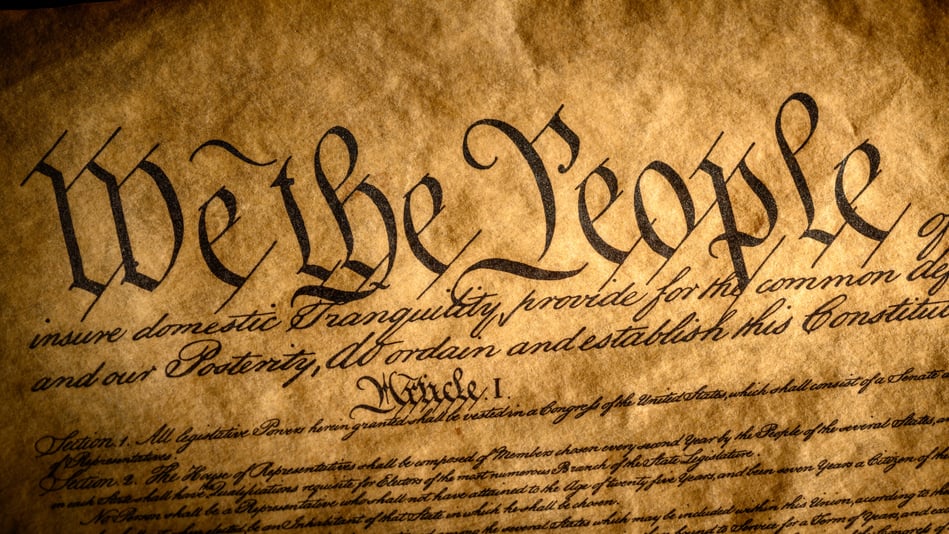 We the People of
insure domestic Tranquility, provide for the common de
and our Posterity, do ordain and establish this Constitu
Article. I.
Section. 1. All legislative Powers herein granted shall be vested in a Congress of the United States, which shall consist of a Senate
of Representatives.
Section. 2. The House of Representatives shall be composed of Members chosen every second Year by the People of the several States,
in each State shall have Qualifications requisite for Electors of the most numerous Branch of the State Legislature.
No Person shall be a Representative who shall not have attained to the Age of twenty five Years, and been seven Years a Citizen of the
be an Inhabitant of that State in which he shall be chosen.
among the several States which may be included within this Union, according to
bound to Service for a Term of Years, and